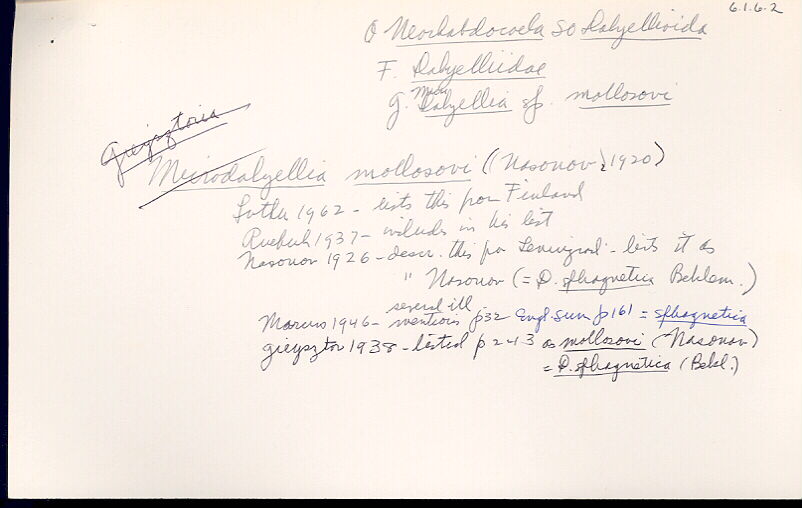 6.1.6.2
O Neorhabdocoela SO Dalyellioida
F. Dalyelliidae
Micro
G. Dalyellia sp. mollosovi
Gieysztoria
Microdalyellia mollosovi (Nasonov, 1920)
Luther 1962 - lists this from Finland
Ruebush 1937 - includes in his list
Nasonov 1926 - descr. this from Leningrad - lists it as
" Nasonov (= D. sphagnetica Beklem.)
several ill.
Marcus 1946 - mentions p32 Engl. sum p161 = sphagnetica
Gieysztor 1938 - listed p 243 as mollosovi (Nasonov)
= D. sphagnetica (Bekl.)